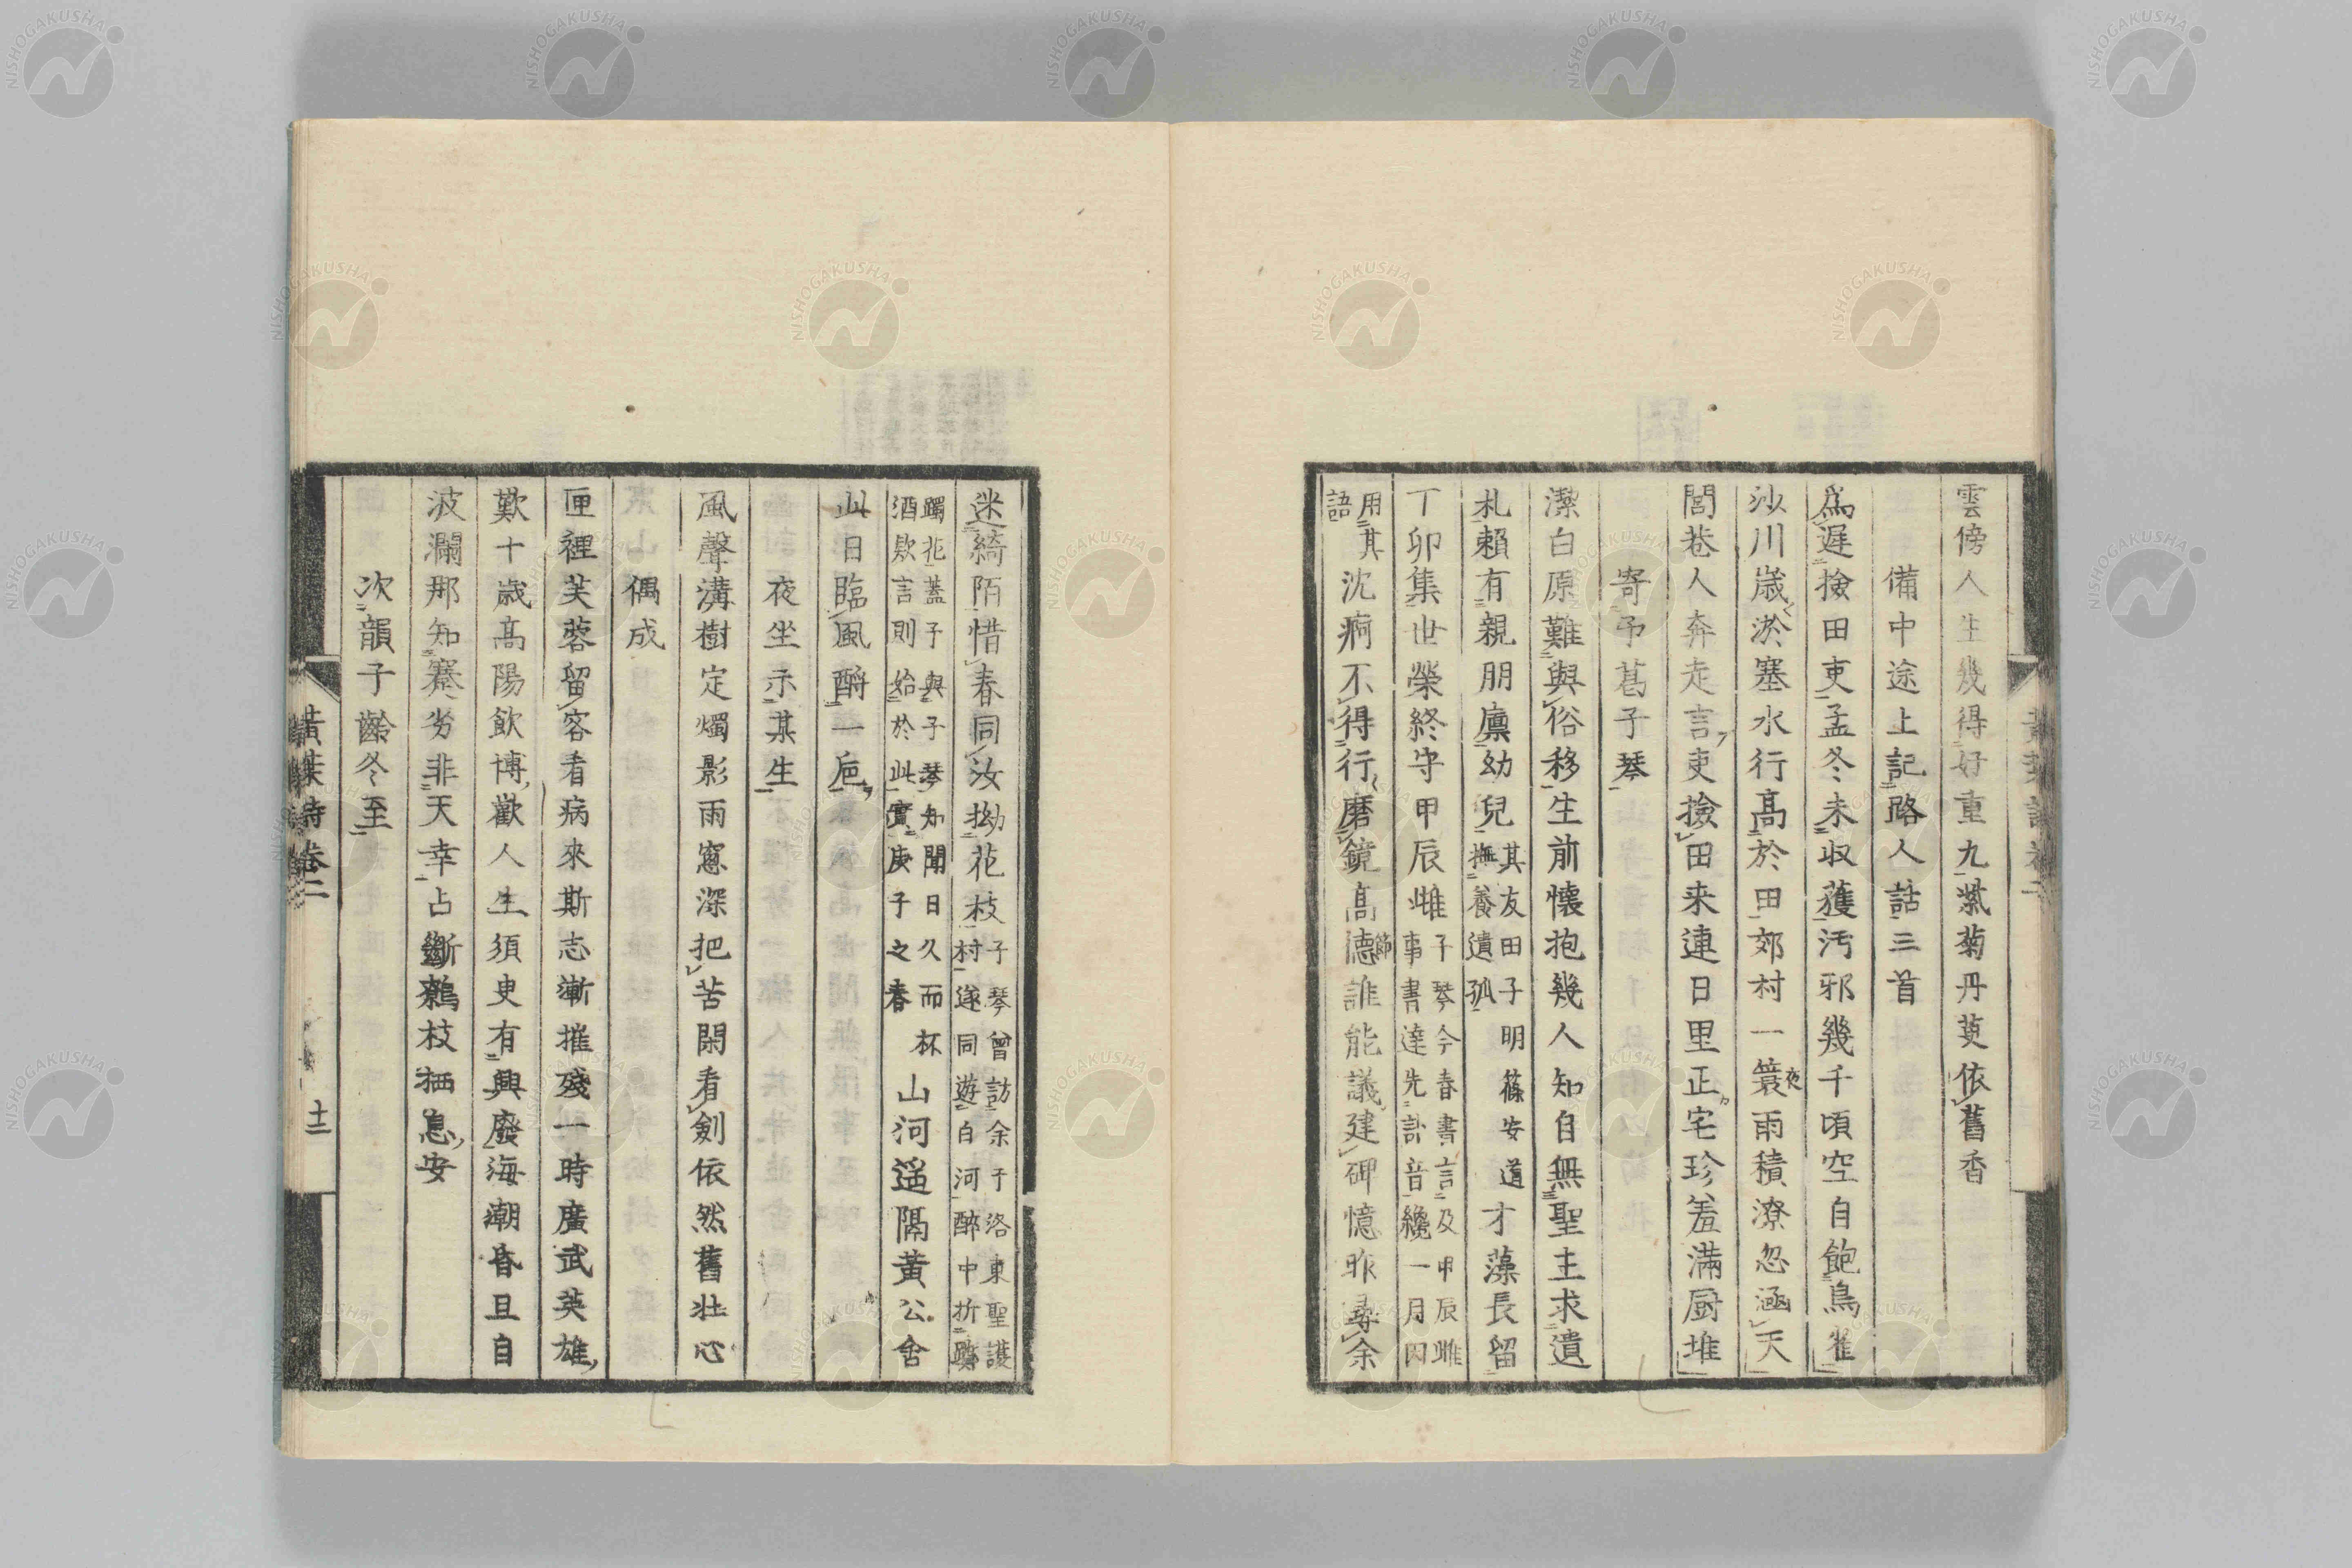 雲傍人生幾得好重九紫菊丹萸依舊香
備中途上記路人話三首
爲遲撿田吏孟冬未収獲汚邪幾千頃空自飽鳥雀
沙川歳淤塞水行高於田郊村一簑夜雨積潦忽涵天
閭巷人奔走言吏撿田来連日里正宅珍羞滿厨堆
寄弔葛子琴
潔白原難與俗移生前懷抱幾人知自無聖主求遺
札賴有親朋廩幼兒其友田子明篠安道撫養遺孤才藻長留
丁卯集世榮終守甲辰雌子琴今春書言及甲辰雌事書達先訃音纔一月因
用其語沈痾不得行磨鏡高德節誰能議建碑憶昨尋余
迷綺陌惜春同汝拗花枝子琴曾訪余于洛東聖護村遂同遊白河醉中折躑
躅花蓋子與子琴知聞日久而杯酒欵言則始於此實庚子之春山河遥隔黄公舍
此日臨風酹一巵
夜坐示某生
風聲溝樹定燭影雨窓深把苦閑看劍依然舊壯心
偶成
匣裡芙蓉留客看病來斯志漸摧殘一時廣武英雄
歎十歳高陽飲博歡人生須臾有興廢海潮昏旦自
波瀾那知蹇劣非天幸占斷鷦枝栖息安
次韻子齡冬至
黄葉詩卷二
十一
NISHOGAKUSHA